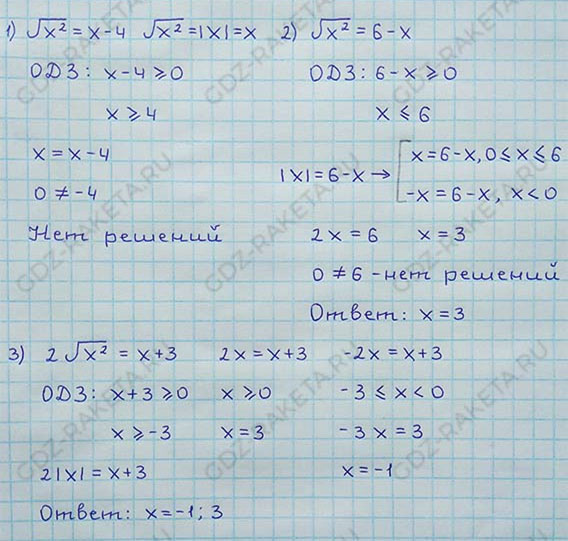 1) √x² = x-4 √x² = |x| = x
ОДЗ: x-4 ⩾ 0
x ⩾ 4
x = x-4
0 ≠ -4
Нет решений
2) √x² = 6-x
ОДЗ: 6-x ⩾ 0
x ⩽ 6
|x| = 6-x → [ x = 6-x, 0 ⩽ x ⩽ 6
-x = 6-x, x < 0
2x = 6 x = 3
0 ≠ 6 - нет решений
Ответ: x = 3
3) 2√x² = x+3 2x = x+3 -2x = x+3
ОДЗ: x+3 ⩾ 0 x ⩾ 0 -3 ⩽ x < 0
x ⩾ -3 x = 3 -3x = 3
2|x| = x+3 x = -1
Ответ: x = -1; 3
GDZ-RAKETA.RU